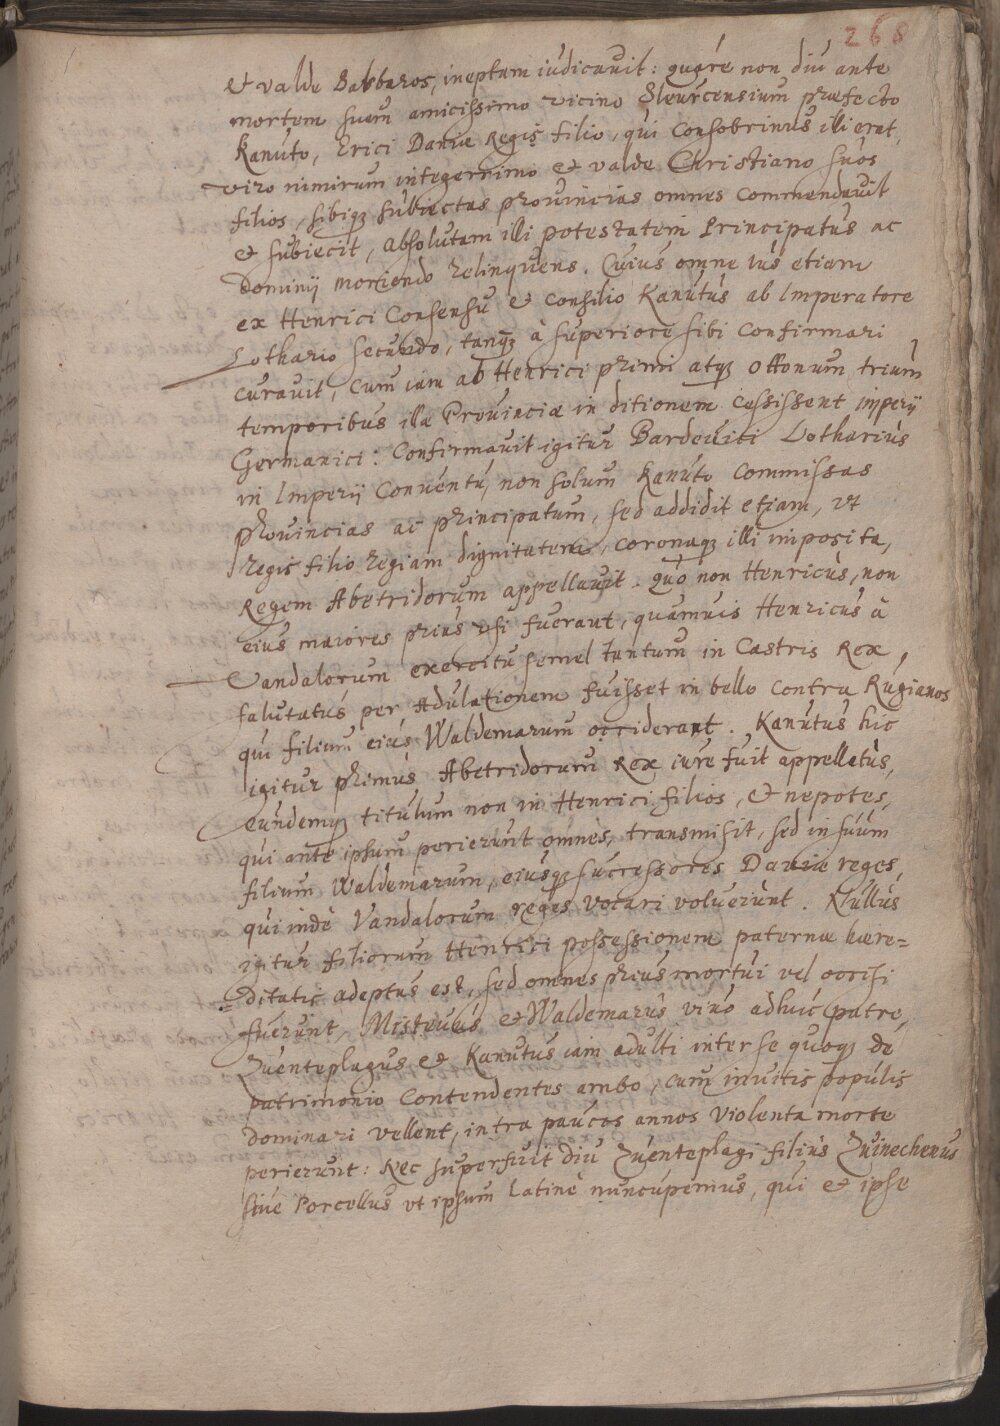 268
et valde Barbaros, ineptam iudicauit: quare non diu ante
mortem suam amicissimo vicino Sleuicensium praefecto
Kanúto, Erici Daniae Regis filio, qui Consobrinus illi erat,
viro nimirum integerrimo et valde Christiano súos
filios, sibiq; subiectas prouincias omnes commendauit
et subiecit, absolutam illi potestatem Principatus ac
Dominij moriendo relinquens. Cuius omne ius etiam
ex Henrici Consensu et consilio Kanútus ab Imperatore
Lothario secundo, tanq; à superiore sibi confirmari
curauit, cum iam ab Henrici primi atq; Ottonum trium
temporibus illae Prouinciae in ditionem cessissent imperij
Germanici: Confirmauit igitur Bardeuici Lotharius
in Imperij Conuentu, non solum Kanúto commissas
prouincias ac principatum, sed addidit etiam, vt
Regis filio Regiam dignitatem, coronaq; illi imposita,
Regem Abetridorum appellauit. Quo non Henricus, non
eius maiores prius vsi fuerant, quamuis Henricus à
Vandalorum exercitu semel tantum in Castris Rex,
salutatus per Adulationem fuisset in bello contra Rugianos
qui filium eius Waldemarum occiderant. Kanutus hic
igitur primus Abetridorum Rex iure fuit appellatus,
eundemq; titulum non in Henrici filios, et nepotes,
qui ante ipsum perierunt omnes, transmisit, sed in suum
filium Waldemarum, eiusq; successores Daniae reges,
qui inde Vandalorum reges vocari voluerunt. Nullus
igitur filiorum Henrici possessionem paternae haere=
ditatis adeptus est, sed omnes prius mortui vel occisi
fuerunt, Misteuus et Waldemarus viuo adhuc patre,
Zuenteplagus et Kanutus iam adulti inter se quoq; de
patrimonio Contendentes ambo, cum inuitis populis
dominari vellent, intra paucos annos violenta morte
perierunt: Nec superfuit diu Zuenteplagi filius Zuinechenus
siue Porcellus vt ipsum latine nuncupemus, qui et ipse